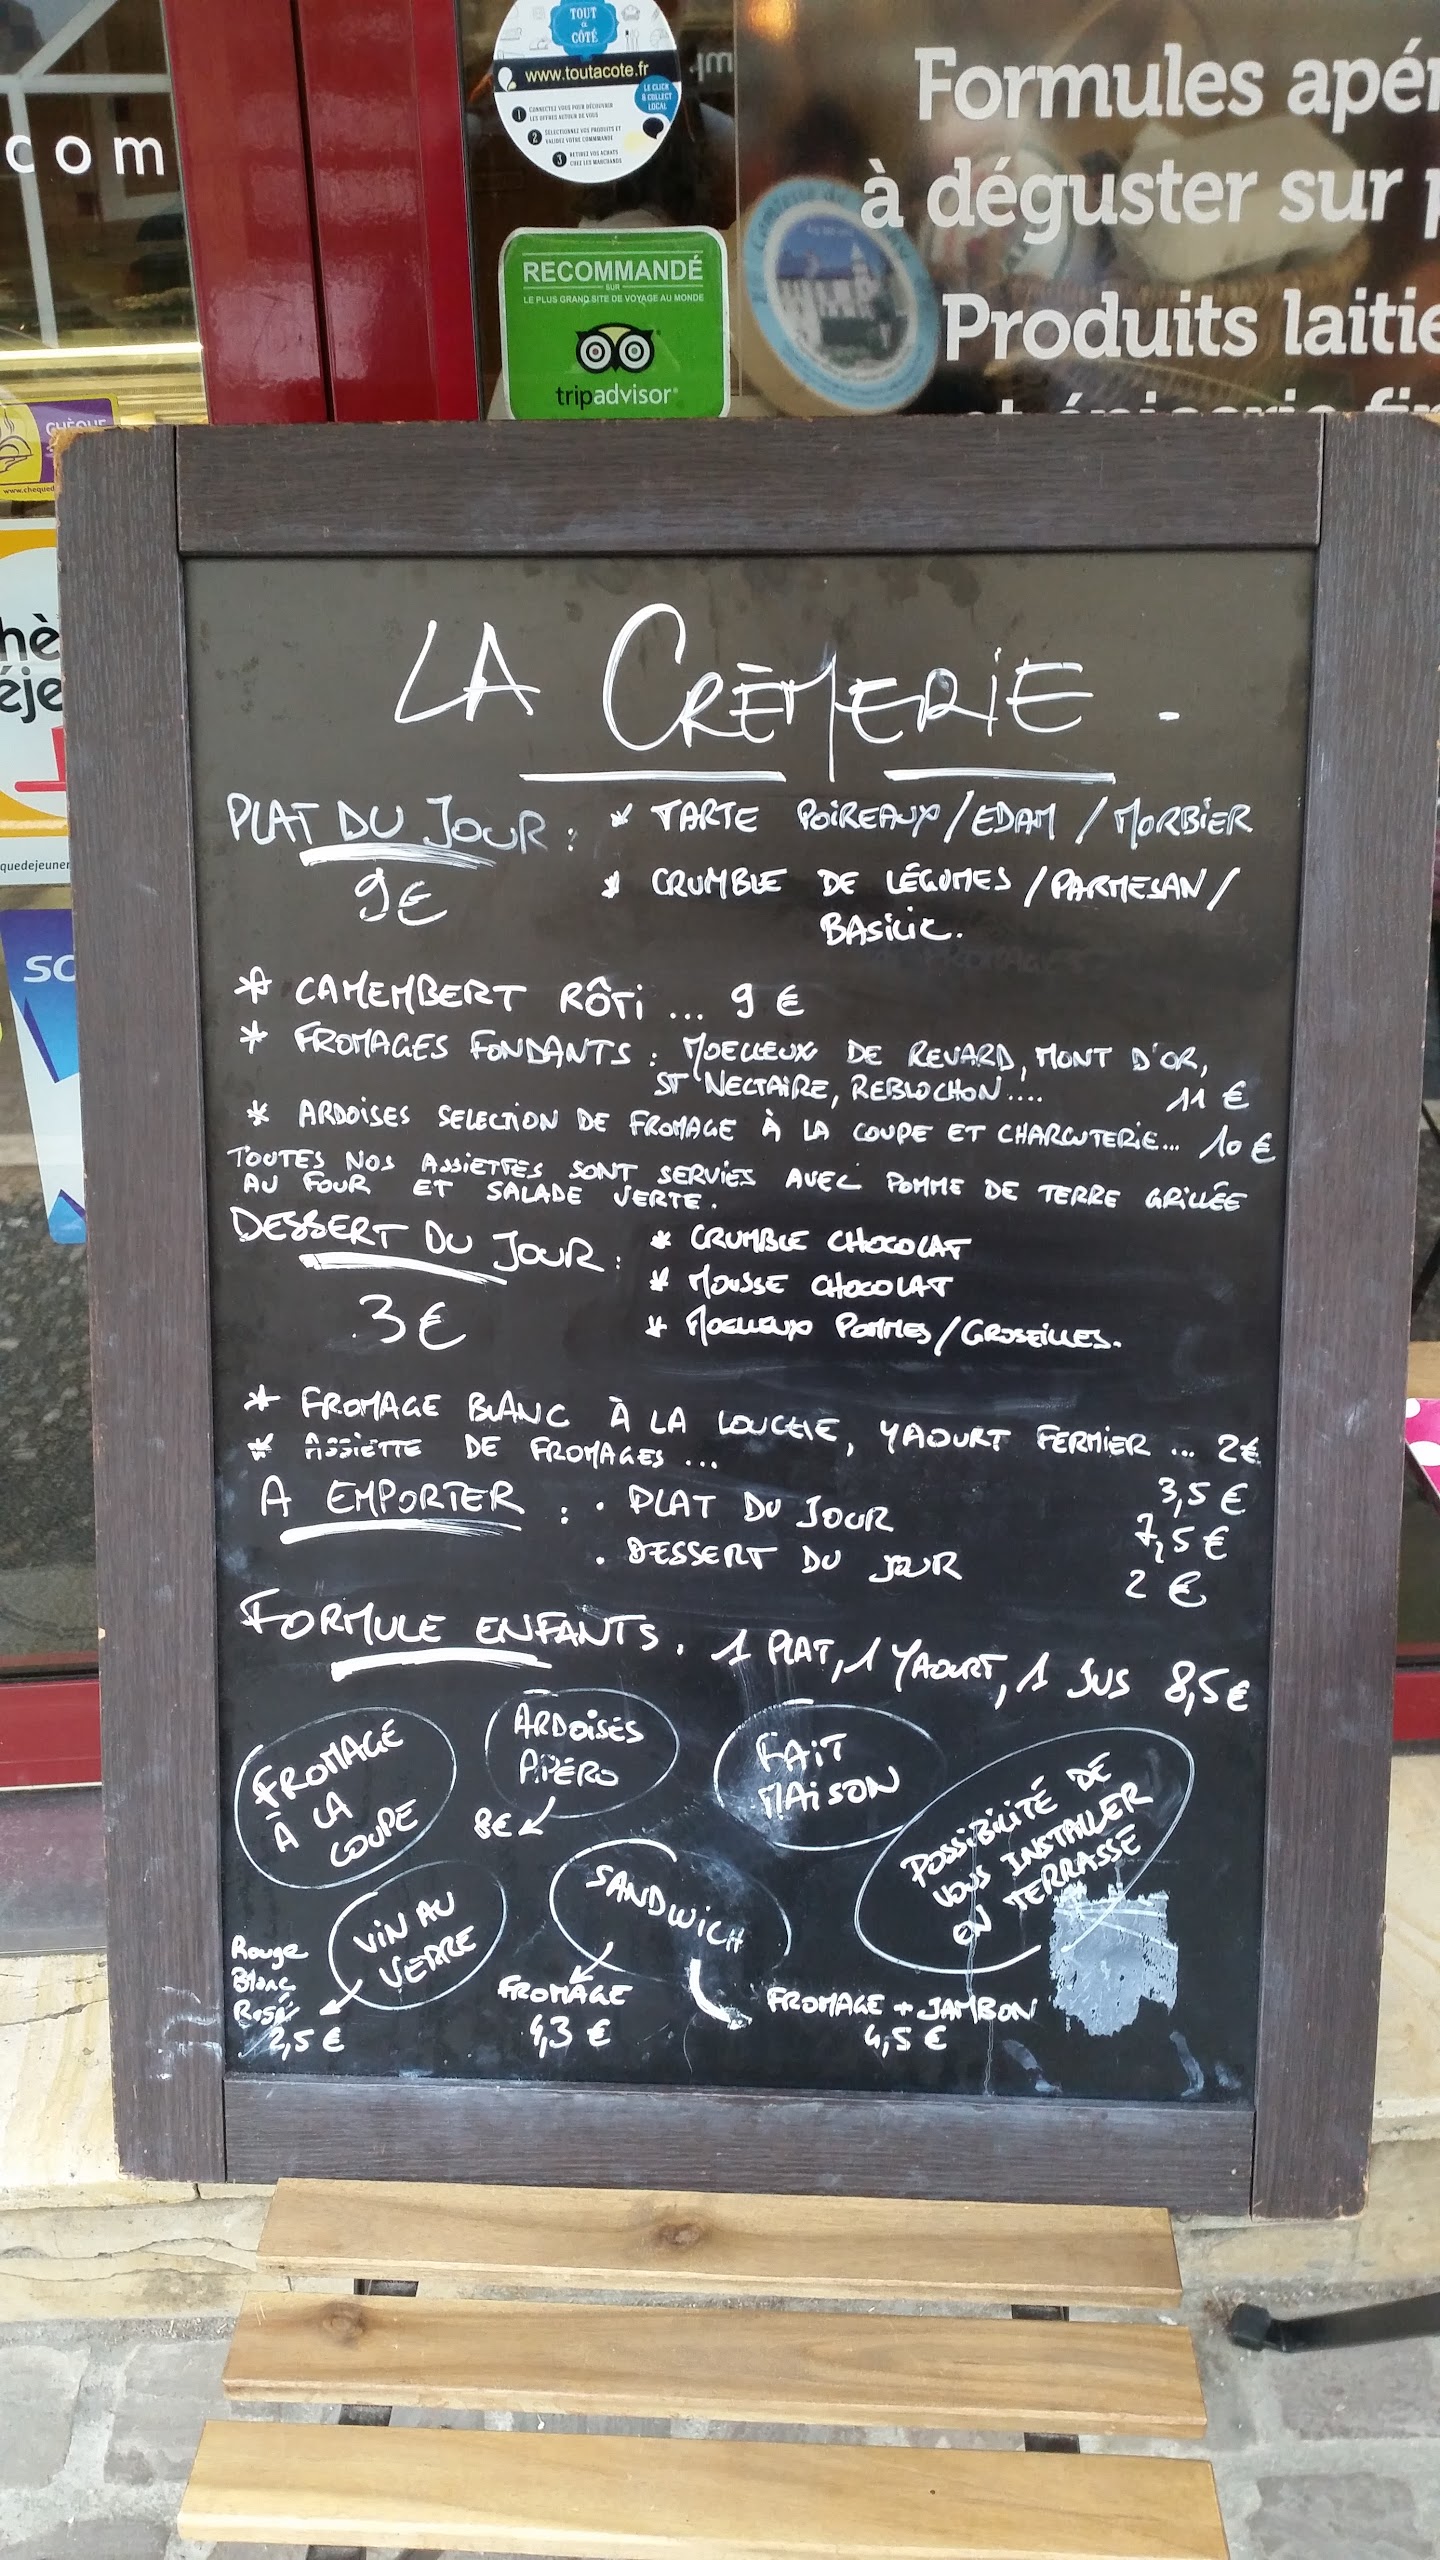 com
TOUT
à
CÔTÉ
www.toutacote.fr
LE CLICK
& COLLECT
LOCAL
1 CONNECTEZ VOUS POUR DÉCOUVRIR
LES OFFRES AUTOUR DE VOUS
2 SÉLECTIONNEZ VOS PRODUITS ET
VALIDEZ VOTRE COMMMANDE
3 RETIREZ VOS ACHATS
CHEZ LES MARCHANDS
Formules apér
à déguster sur p
Produits laitie
et épicerie fin
RECOMMANDÉ
SUR
LE PLUS GRAND SITE DE VOYAGE AU MONDE
tripadvisor
CHÈQUE
www.chequed
hè
éje
quedejeuner
SO
LA CRÈMERIE -
PLAT DU JOUR : * TARTE POIREAUX / EDAM / MORBIER
9€ * CRUMBLE DE LÉGUMES / PARMESAN /
BASILIC.
* CAMEMBERT RÔTI ... 9 €
* FROMAGES FONDANTS : MOELLEUX DE REVARD, MONT D'OR,
ST NECTAIRE, REBLOCHON .... 11 €
* ARDOISES SELECTION DE FROMAGE À LA COUPE ET CHARCUTERIE... 10 €
TOUTES NOS ASSIETTES SONT SERVIES AVEC POMME DE TERRE GRILLÉE
AU FOUR ET SALADE VERTE.
DESSERT DU JOUR : * CRUMBLE CHOCOLAT
* MOUSSE CHOCOLAT
3€ * MOELLEUX POMMES / GROSEILLES.
* FROMAGE BLANC À LA LOUCHE, YAOURT FERMIER ... 2€
* ASSIETTE DE FROMAGES ... 3,5 €
A EMPORTER : . PLAT DU JOUR 7,5 €
. DESSERT DU JOUR 2 €
FORMULE ENFANTS. 1 PLAT, 1 YAOURT, 1 JUS 8,5 €
FROMAGE
À LA
COUPE
ARDOISES
APÉRO
8€
FAIT
MAISON
POSSIBILITÉ DE
VOUS INSTALLER
EN TERRASSE
VIN AU
VERRE
Rouge
Blanc
Rosé
2,5 €
SANDWICH
FROMAGE
4,3 €
FROMAGE + JAMBON
4,5 €